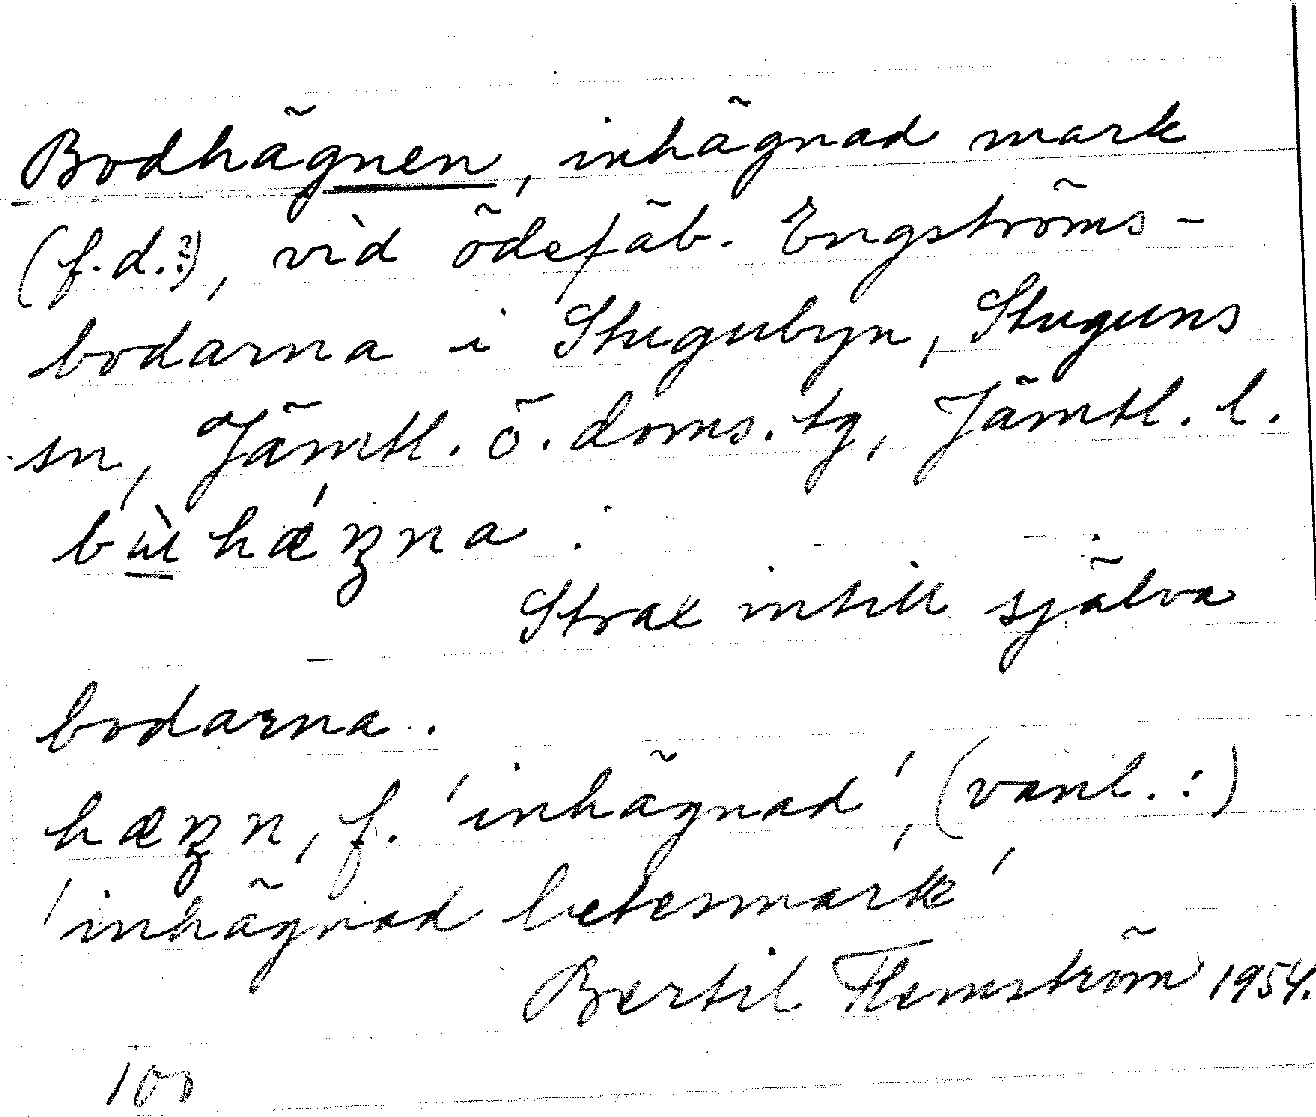 Bodhägnen, inhägnad mark
(f.d.?), vid ödefäb. Engströms-
bodarna i Stugubyn, Stuguns
sn, Jämtl. ö. doms. tg, Jämtl. l.
Strax intill själva
bodarna.
f. 'inhägnad', (vanl.:)
'inhägnad betesmark'
Bertil Flemström 1954.
100